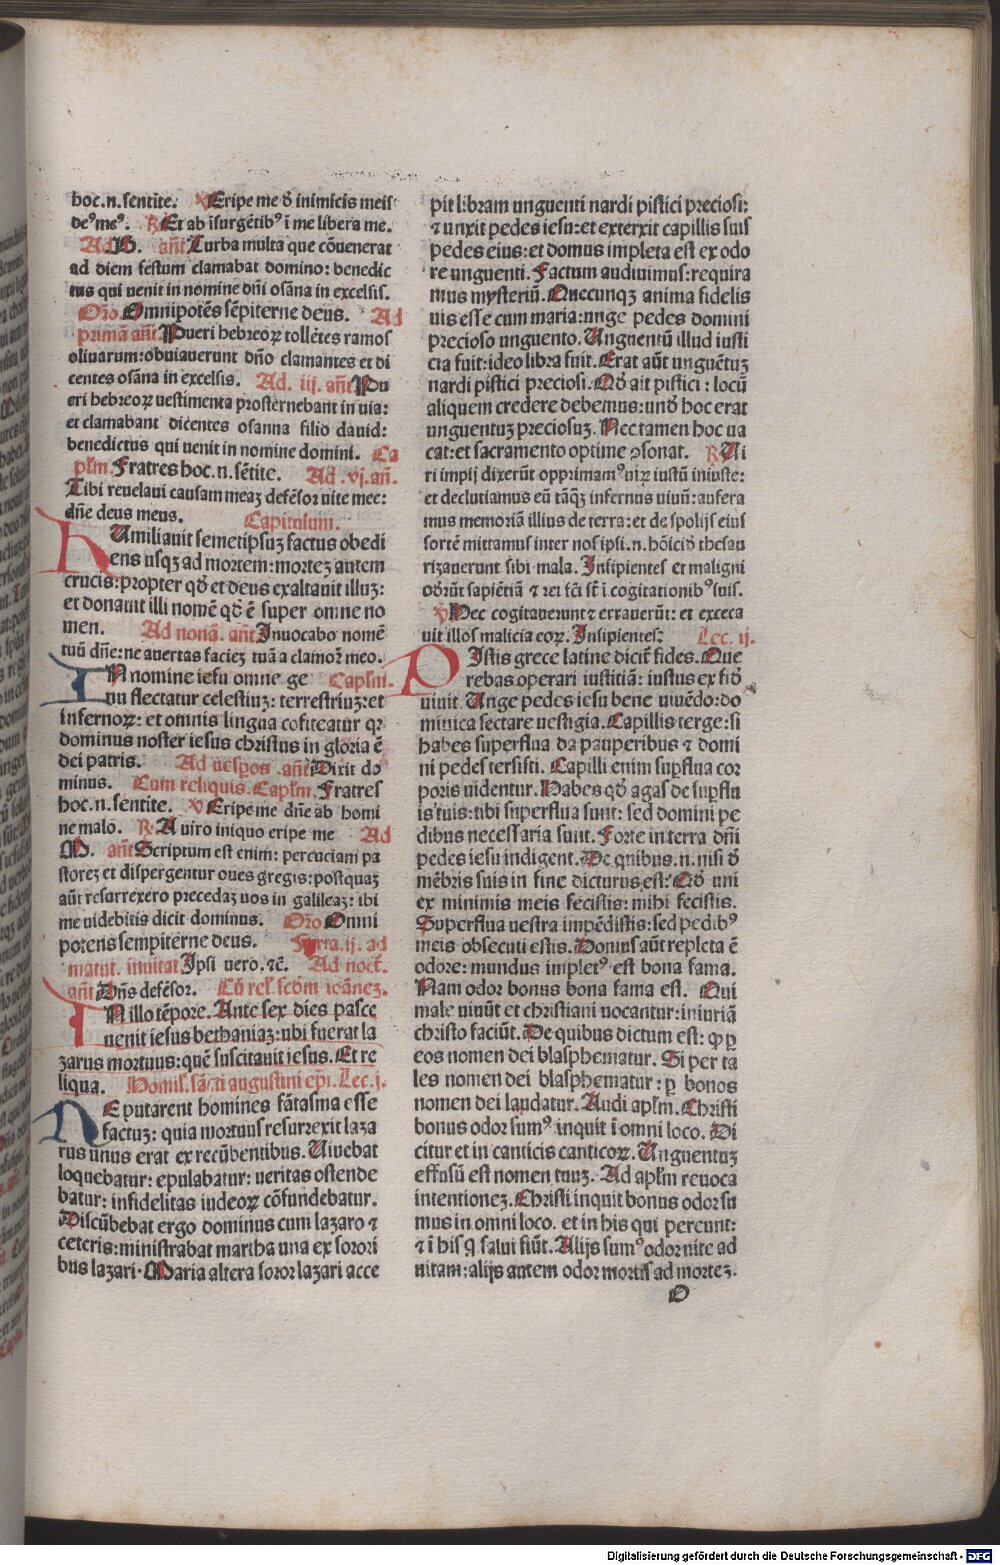 hoc.n.sentite. ℣ Eripe me dñe inimicis meis
deꝰ meꝰ. ℟ Et ab isurgētibꝰ ī me libera me.
Ad M. añt Turba multa que cōuenerat
ad diem festum clamabat domino: benedic
tus qui uenit in nomine dñi osāna in excelsis.
Oro Omnipotēs sēpiterne deus. Ad
primā añt Pueri hebreoꝝ tollētes ramos
oliuarum: obuiauerunt dño clamantes et di
centes osāna in excelsis. Ad. iij. añt Pu
eri hebreoꝝ uestimenta prosternebant in uia:
et clamabant dicentes osanna filio dauid:
benedictus qui uenit in nomine domini. Ca
pľm. Fratres hoc.n.sētite. Ad .vj.añ.
Tibi reuelaui causam meaz defēsor uite mee:
dñe deus meus. Capitulum.
HUmiliauit semetipsuz factus obedi
ens usqꝫ ad mortem: mortez autem
crucis: propter qđ et deus exaltauit illuz:
et donauit illi nomē qđ ē super omne no
men. Ad nonā. añt Inuocabo nomē
tuū dñe: ne auertas faciez tuā a clamorꝫ meo.
IN nomine iesu omne ge Capľm.
nu flectatur celestiuz: terrestriuz: et
infernoꝝ: et omnis lingua cōfiteatur qꝛ
dominus noster iesus christus in gloria ē
dei patris. Ad uesꝑos .añt Dixit do
minus. Cum reliquis. Capľm. Fratres
hoc.n.sentite. ℣ Eripe me dñe ab homi
ne malo. ℟ A uiro iniquo eripe me Ad
M. añt Scriptum est enim: percuciam pa
storez et dispergentur oues gregis: postquaz
aūt resurrexero precedaz uos in galileaz: ibi
me uidebitis dicit dominus. Oro Omni
potens sempiterne deus. Feria .ij. ad
matut. inuitat Ipsi uero. ꝛc̄. Ad noct̄.
añt Dñs defēsor. Cū reľ. scdm ioānez.
IN illo tēpore. Ante sex dies pasce
uenit iesus bethaniaz: ubi fuerat la
zarus mortuus: quē suscitauit iesus. Et re
liqua. Homiľ. sācti augustini ep̄i. Lec. j.
NE putarent homines fātasma esse
factuz: quia mortuus resurrexit laza
rus unus erat ex recūbentibus. Uiuebat
loquebatur: epulabatur: ueritas ostende
batur: infidelitas iudeoꝝ cōfundebatur.
Discūbebat ergo dominus cum lazaro ꝛ
ceteris: ministrabat martha una ex sorori
bus lazari. Maria altera soror lazari acce
pit libram unguenti nardi pistici preciosi:
ꝛ unxit pedes iesu: et exterxit capillis suis
pedes eius: et domus impleta est ex odo
re unguenti. Factum audiuimus: requira
mus mysteriū. Quecunqꝫ anima fidelis
uis esse cum maria: unge pedes domini
precioso unguento. Unguentū illud iusti
cia fuit: ideo libra fuit. Erat aūt unguētuz
nardi pistici preciosi. Qđ ait pistici: locū
aliquem credere debemus: unđ hoc erat
unguentuz preciosuz. Nec tamen hoc ua
cat: et sacramento optime ꝯsonat. ℟ Ui
ri impij dixerūt opprimamꝰ uiꝝ iustū iniuste:
et declutiamus eū tāqꝫ infernus uiuū: aufera
mus memoriā illius de terra: et de spolijs eius
sortē mittamus inter nos ipsi.n.hōicid̄ thesau
rizauerunt sibi mala. Insipientes et maligni
oderūt sapiētiā ꝛ rei fc̄i st̄ ī cogitationibꝰ suis.
℣ Hec cogitauerunt ꝛ errauerūt: et exceca
uit illos malicia eoꝝ. Insipientes: Lec. ij.
PIstis grece latine dicit̄ fides. Que
rebas operari iustitiā: iustus ex fiđ
uiuit. Unge pedes iesu bene uiuēdo: do
minica sectare uestigia. Capillis terge: si
habes superflua da pauperibus ꝛ domi
ni pedes tersisti. Capilli enim supflua cor
poris uidentur. Habes qđ agas de supflu
is tuis: tibi superflua sunt: sed domini pe
dibus necessaria sunt. Forte in terra dñi
pedes iesu indigent. De quibus.n.nisi đ
mēbris suis in fine dicturus est: Qđ uni
ex minimis meis fecistis: mihi fecistis.
Superflua uestra impēdistis: sed pedibꝰ
meis obsecuti estis. Domus aūt repleta ē
odore: mundus impletꝰ est bona fama.
Nam odor bonus bona fama est. Qui
male uiuūt et christiani uocantur: iniuriā
christo faciūt. De quibus dictum est: ꝙ ꝑ
eos nomen dei blasphematur. Si per ta
les nomen dei blasphematur: ꝑ bonos
nomen dei laudatur. Audi apľm. Christi
bonus odor sumꝰ inquit ī omni loco. Di
citur et in canticis canticoꝝ. Unguentuz
effusū est nomen tuuz. Ad apľm reuoca
intentionez. Christi inquit bonus odor su
mus in omni loco. et in his qui pereunt:
ꝛ ī his q̄ salui fiūt. Alijs sumꝰ odor uite ad
uitam: alijs autem odor mortis ad mortez.
O
Digitalisierung gefördert durch die Deutsche Forschungsgemeinschaft - DFG